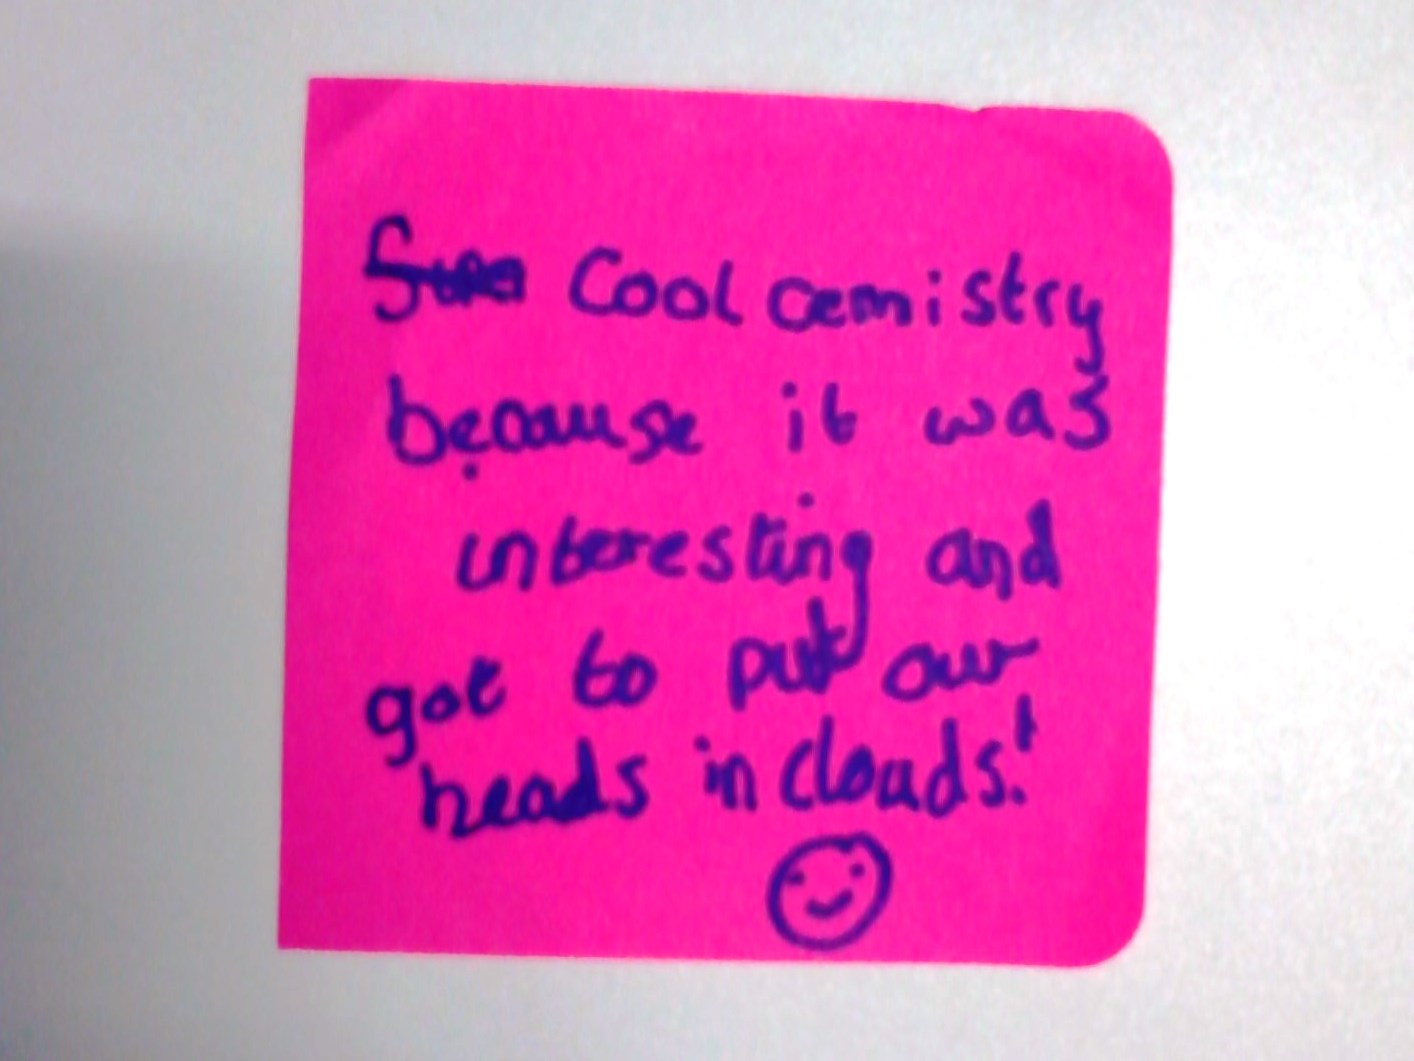 Cool cemistry
because it was
interesting and
got to put our
heads in clouds!